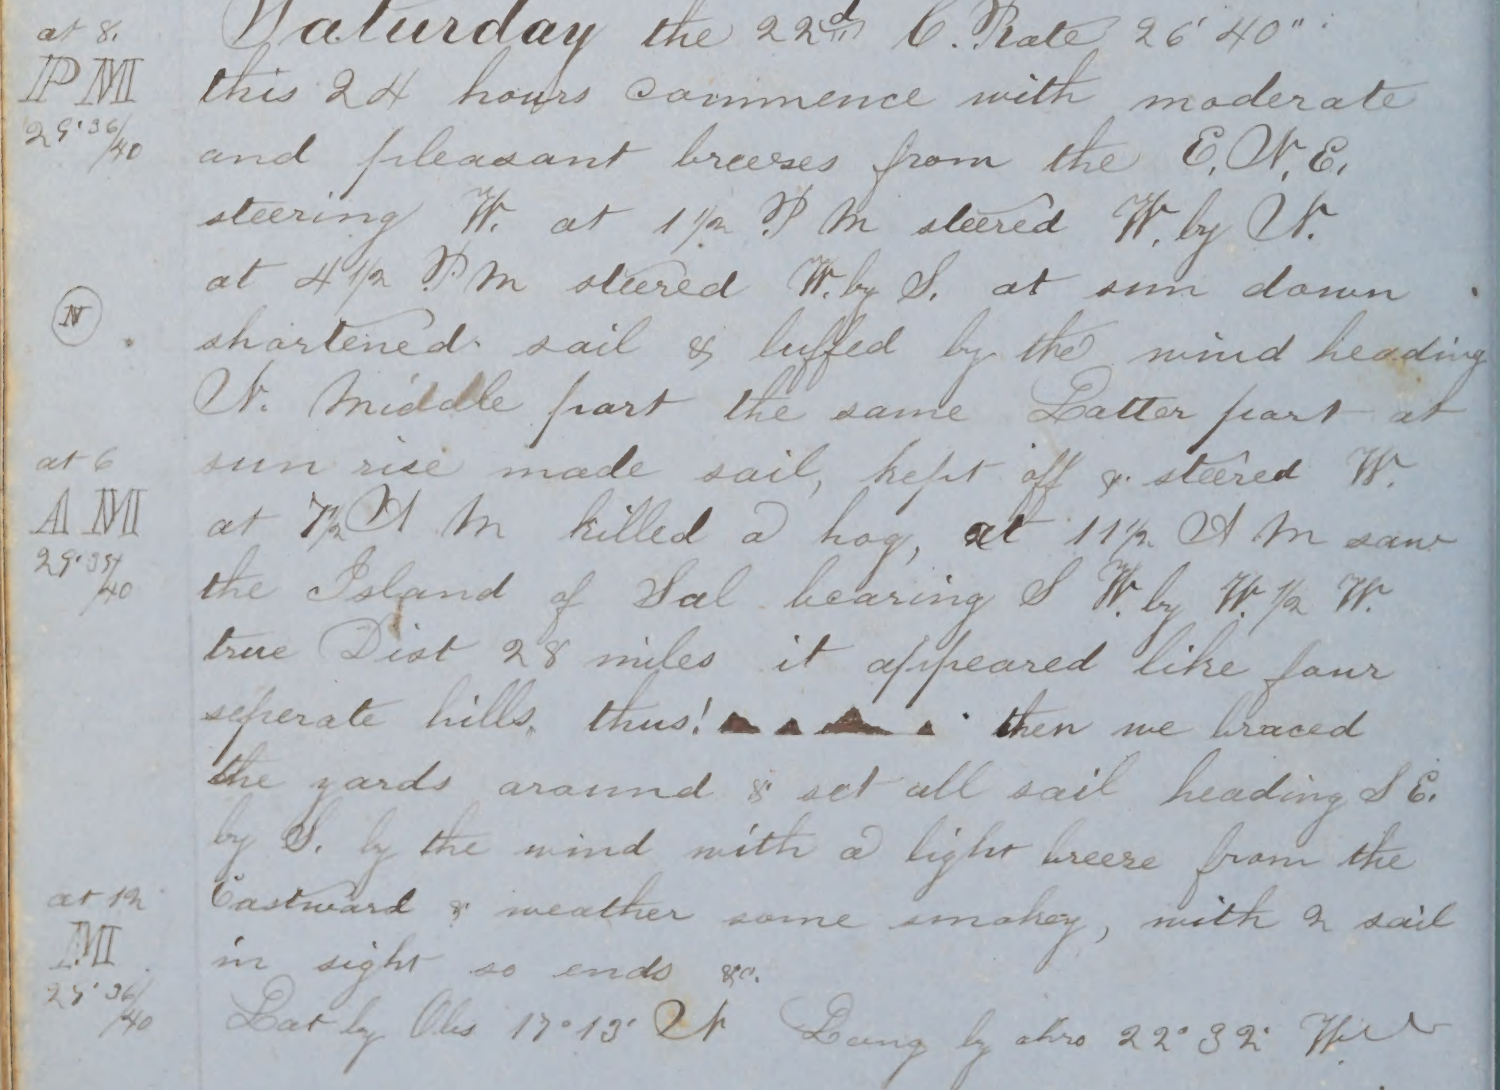 at 8.
PM
29°36/40
Saturday the 22nd C. Rate 26' 40"
this 24 hours commence with moderate
and pleasant breeses from the E.N.E.
steering W. at 1 1/2 P M steered W. by N.
at 4 1/2 P M steered W. by S. at sun down
N
shortened sail & luffed by the wind heading
N. Middle part the same Latter part at
at 6
AM
29°35/40
sun rise made sail, kept off & steered W.
at 7 1/2 A M killed a hog, at 11 1/2 A M saw
the Island of Sal bearing S W. by W. 1/2 W.
true Dist 28 miles it appeared like four
seperate hills, thus! then we braced
the yards around & set all sail heading S E.
by S. by the wind with a light breese from the
at 12
M
36/40
Eastward & weather some smokey, with 2 sail
in sight so ends &c.
Lat by Obs 17°13' N Long by chro 22°32' W